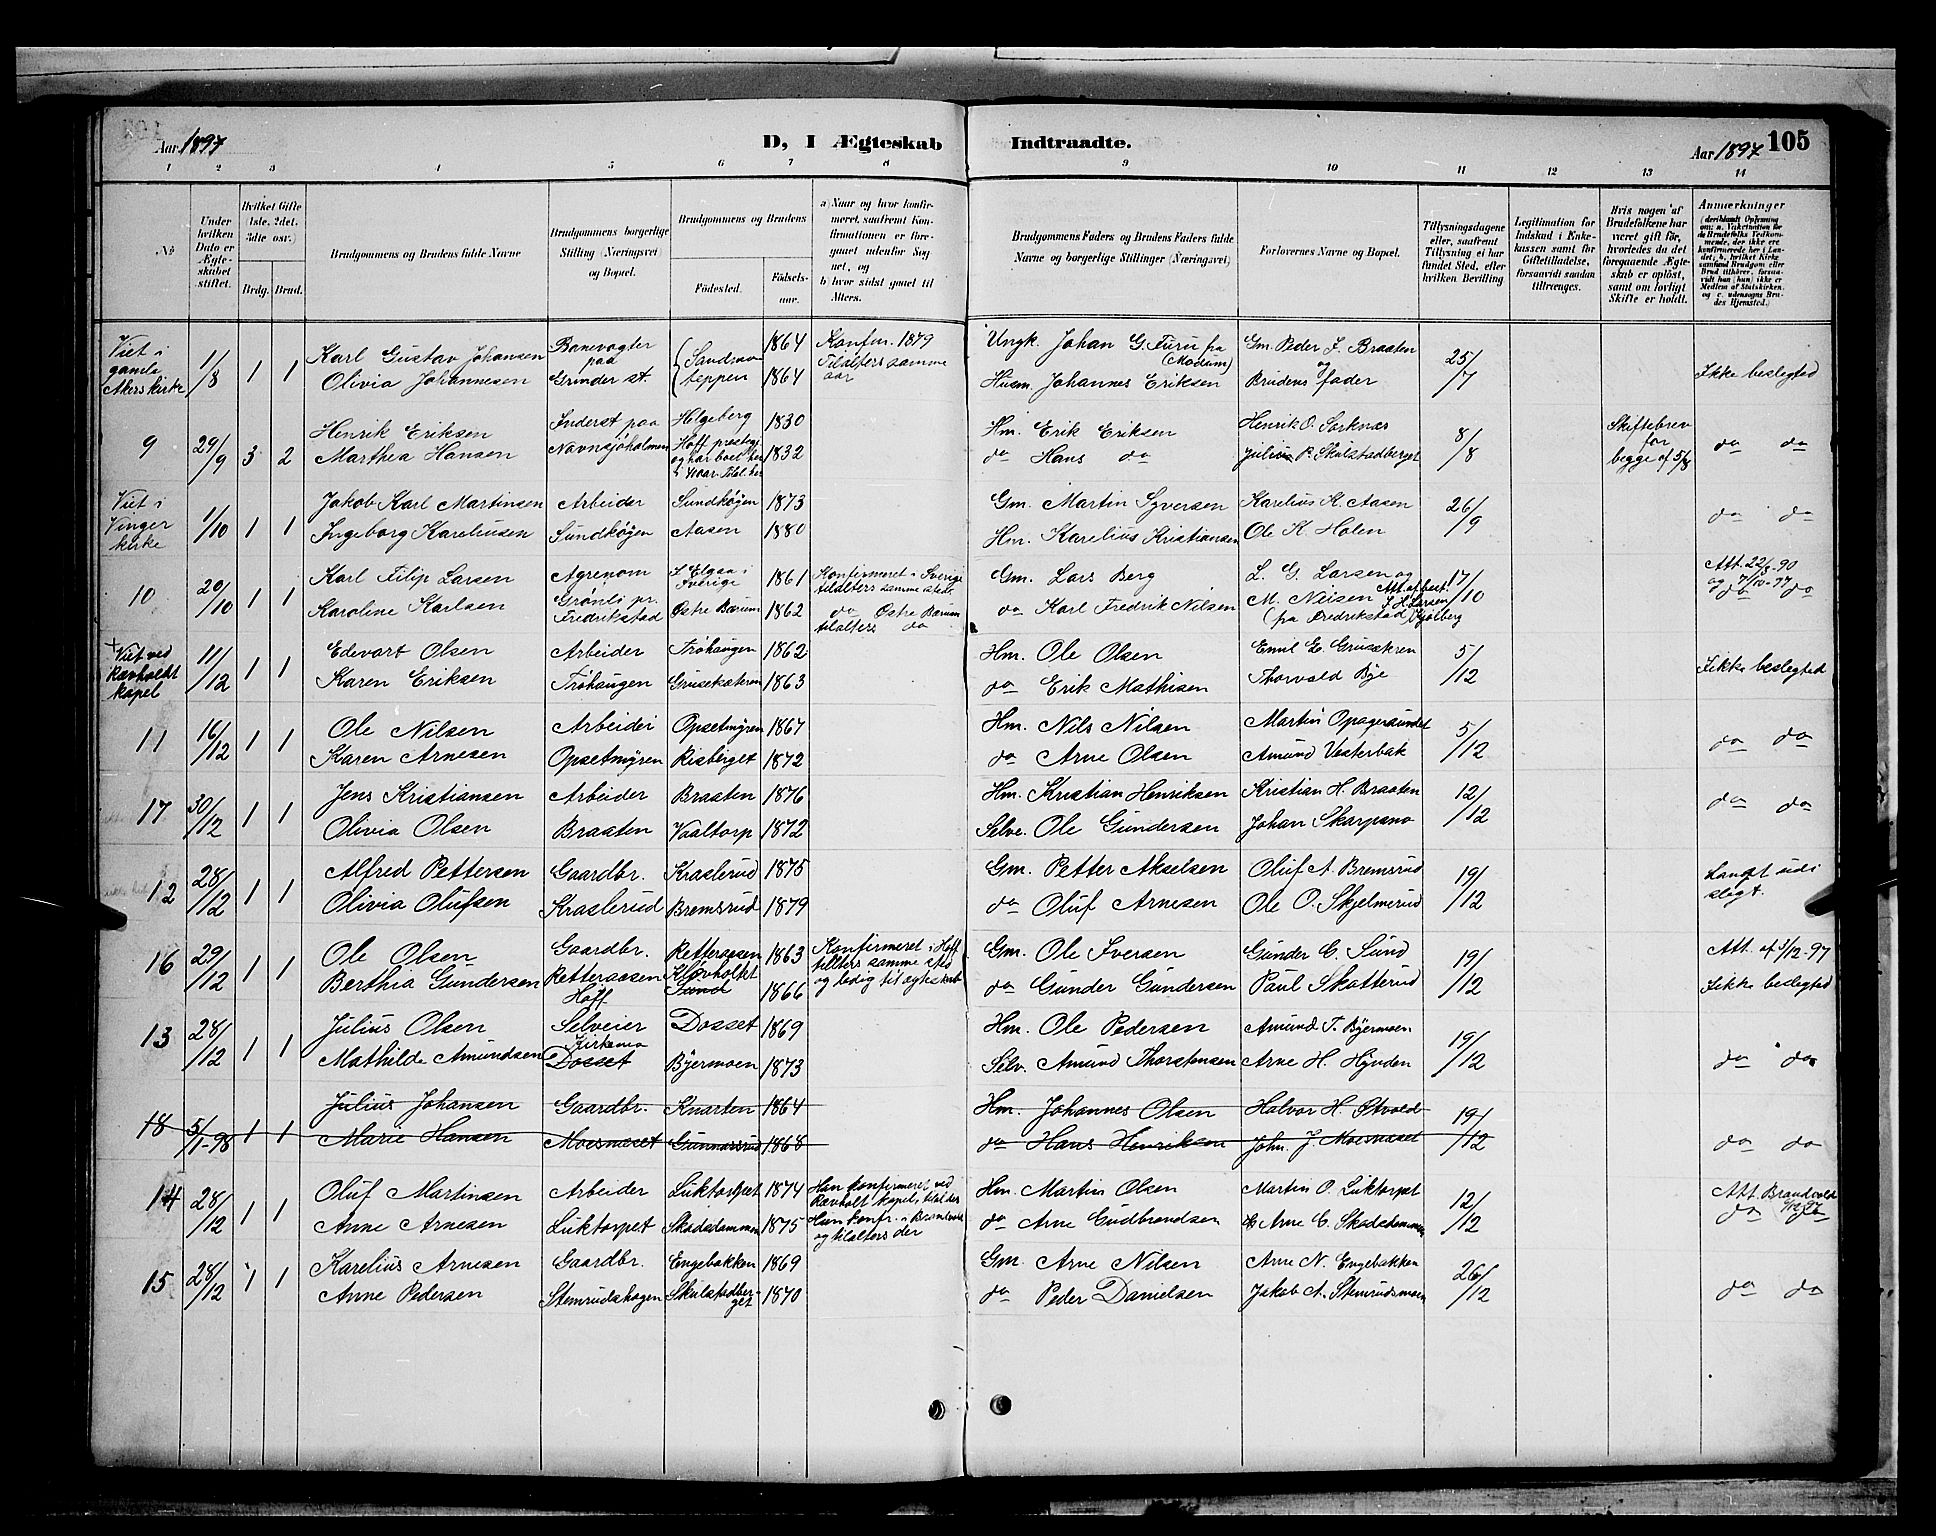 Aar 1897 D, I Ægteskab Indtraadte. Aar 1897 105
1 2 3 4 5 6 7 8 9 10 11 12 13 14
No
Under hvilken Dato er Ægteskabet stiftet.
Hvilket Gifte (1ste, 2det, 3dte osv.)
Brdg. Brud.
Brudgommens og Brudens fulde Navne
Brudgommens borgerlige Stilling (Næringsvei) og Bopæl.
Brudgommens og Brudens
Födested. Födselsaar.
a) Naar og hvor konfirmeret, saafremt Konfirmationen er foregaaet udenfor Sognet, og
b) hvor sidst gaaet til Alters.
Brudgommens Faders og Brudens Faders fulde Navne og borgerlige Stillinger (Næringsvei)
Forlovernes Navne og Bopæl.
Tillysningsdagene eller, saafremt Tillysning ei har fundet Sted, efter hvilken Bevilling
Legitimation for Indskud i Enkekassen samt for Giftetilladelse, forsaavidt saadan tiltrænges.
Hvis nogen af Brudefolkene har været gift för, hvorledes da det foregaaende Ægteskab er oplöst, samt om lovligt Skifte er holdt.
Anmærkninger
Viet i gamle Akers kirke 1/8 1 1 Karl Gustav Johansen Banevogter paa 1864 Konfirm. 1879 Ungk. Johan G. Furu fra (Modum) Gm. Peder L. Braaten og 25/7
Olivia Johannesen Grinder st. 1864 Tilalters samme aar Husm. Johannes Eriksen Brudens fader Ikke beslegted
9 29/9 3 2 Henrik Eriksen Inderst paa Helgeberg 1830 Hm. Erik Eriksen Henrik O. Sorknæs 8/8 Skiftebrev for begge af 5/8
Marthea Hansen Navnsjöholmen Hoff 1832 do Hans do Julius P. Skulstadberget do do
Viet i Vinger kirke 1/10 1 1 Jakob Karl Martinsen Arbeider Sundkøien 1873 Gm. Martin Syversen Karelius K. Aasen 26/9
Ingeborg Kareliusen Sundkøien Aasen 1880 Hm. Karelius Kristiansen Ole K. Holen do do
10 20/10 1 1 Karl Filip Larsen Agronom Sverige 1861 Konfirmeret i Sverige tilalters samme sted. Gm. Lars Berg L. G. Larsen og 17/10 Att. 22/6-90
Karoline Karlsen Grønli pr. Fredrikstad Østre Bærum 1862 do Østre Bærum tilalters do do Karl Fredrik Nilsen M. Nilsen (fra Fredrikstad) do do
Viet ved Rævholdt kapel 11/12 1 1 Edevart Olsen Arbeider Frøhaugen 1862 Hm. Ole Olsen Emil E. Grusekren 5/12
Karen Eriksen Frøhaugen Grusekateren 1863 do Erik Mathisen Thorvald Bye Ikke beslegted
11 16/12 1 1 Ole Nilsen Arbeider Opsetmyren 1867 Hm. Nils Nilsen Martin Opagersundet 5/12
Karen Arnesen Opsetmyren Risberget 1872 do Arne Olsen Amund Vesterbak do do
17 30/12 1 1 Jens Kristiansen Arbeider Braaten 1876 Hm. Kristian Henriksen Kristian H. Braaten 12/12
Olivia Olsen Braaten Vaaltorp 1872 Selve. Ole Gundersen Johan Skarpsno do do
12 28/12 1 1 Alfred Pettersen Gaardbr. Kraslerud 1875 Gm. Petter Akselsen Oluf A. Bremsrud 19/12 Langt udi slegt.
Olivia Olufsen Kraslerud Bremsrud 1879 do Oluf Arnesen Ole O. Skjelmerud
16 29/12 1 1 Ole Olsen Gaardbr. Retteraasen 1863 Konfirmeret i Hoff tilalters samme sted og ledig til egteskab Gm. Ole Iversen Gunder G. Sund 19/12 Att. af 3/12-97
Berthia Gundersen Retteraasen Hoff Kløvholtet Sund 1866 do Gunder Gundersen Paul Skatterud Ikke beslegted
13 28/12 1 1 Julius Olsen Selveier Dosset 1869 Hm. Ole Pedersen Amund T. Byermoen 19/12
Mathilde Amundsen Kirkemo Dosset Byermoen 1873 Selv. Amund Thorstensen Arne H. Hynden do do
18 5/1-98 1 1 Julius Johansen Gaardbr. Knarten 1864 Hm. Johannes Olsen Halvor H. Østvold 19/12
Marie Hansen Moesnæset Gunnarsrud 1868 do Hans Henriksen Johs. J. Moesnæset do do
14 28/12 1 1 Oluf Martinsen Arbeider Luktorpet 1874 Han konfirmeret ved Rævholt kapel, tilalters Hm. Martin Olsen Martin O. Luktorpet 12/12 Att. Brandvold
Anne Arnesen Luktorpet Skadsdammen 1875 Hun konfr. i Brandvold og tilalters der do Arne Gudbrandsen Arne G. Skadsdammen do do
15 28/12 1 1 Karelius Arnesen Gaardbr. Engebakken 1869 Gm. Arne Nilsen Arne N. Engebakken 26/12
Anne Pedersen Stemrudshagen Skulstadberget 1870 do Peder Danielsen Jakob A. Stemrudsmoen do do